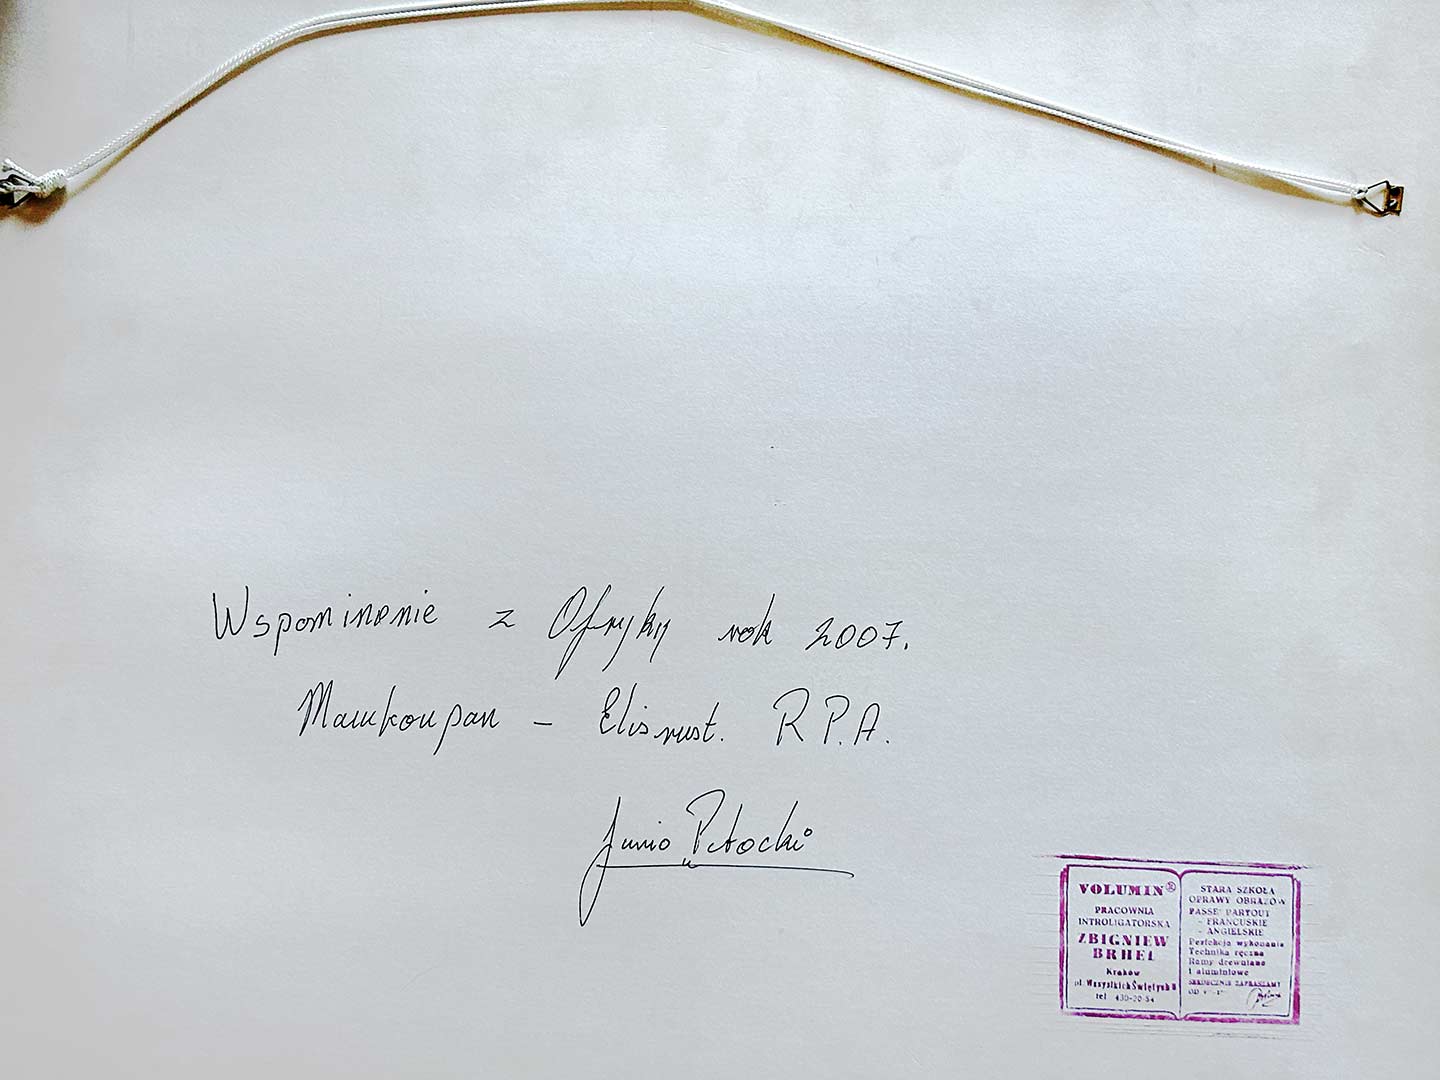 Wspomnienie z Afryky rok 2007.
Maukoupan - Elisrust. R.P.A.
Junio Potocki
VOLUMIN®
PRACOWNIA
INTROLIGATORSKA
ZBIGNIEW
BRHEL
Kraków
pl. Wszystkich Świętych 8
tel 430-20-54
STARA SZKOŁA
OPRAWY OBRAZÓW
PASSE PARTOUT
- FRANCUSKIE
- ANGIELSKIE
Perfekcja wykonania
Technika ręczna
Ramy drewniane
i aluminiowe
SERDECZNIE ZAPRASZAMY
OD